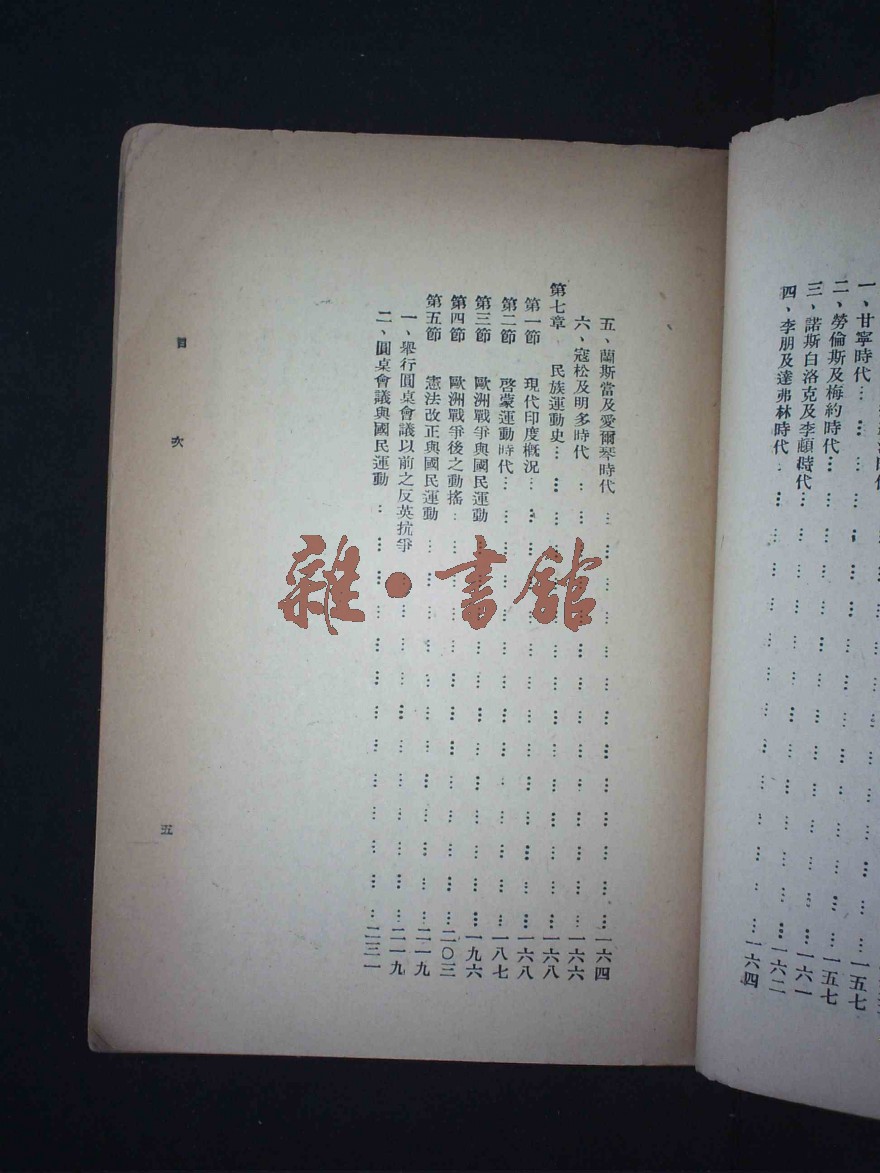 一、甘寧時代…一五七
二、勞倫斯及梅約時代…一五七
三、諾斯白洛克及李頓時代…一六一
四、李朋及達弗林時代…一六二
一六四
五、蘭斯當及愛爾琴時代…一六四
六、寇松及明多時代…一六六
第七章 民族運動史…一六八
第一節 現代印度概況…一六八
第二節 啓蒙運動時代…一八七
第三節 歐洲戰爭與國民運動…一九六
第四節 歐洲戰爭後之動搖…二〇三
第五節 憲法改正與國民運動…二一九
一、舉行圓桌會議以前之反英抗爭…二一九
二、圓桌會議與國民運動…二三一
目次
五
雜·書館